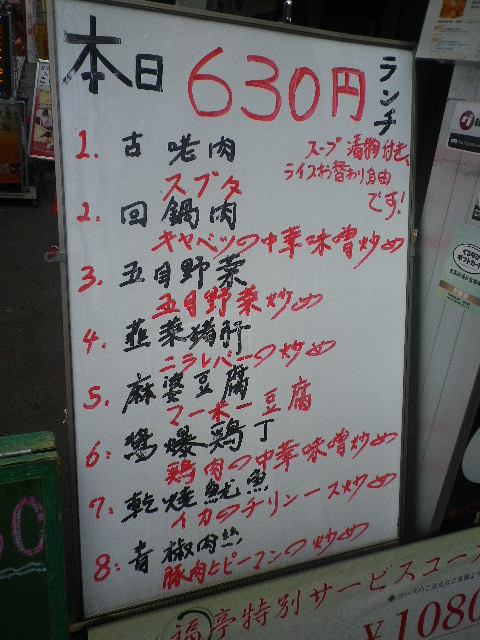 本日 630円 ランチ
スープ 漬物付き、
ライスお替わり自由
です!
1. 古咾肉
スブタ
2. 回鍋肉
キャベツの中華味噌炒め
3. 五目野菜
五目野菜炒め
4. 韮菜猪肝
ニラレバーの炒め
5. 麻婆豆腐
マーボー豆腐
6: 醤爆鶏丁
鶏肉の中華味噌炒め
7: 乾焼魷魚
イカのチリソース炒め
8: 青椒肉絲
豚肉とピーマンの炒め
福亭特別サービスコース
¥1080